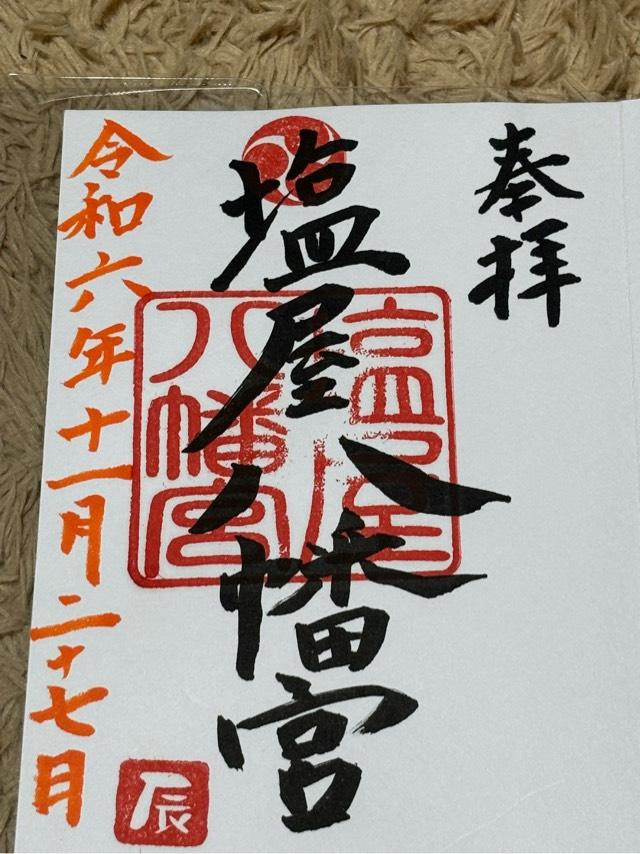 奉拝
塩屋八幡宮
塩屋
八幡宮
令和六年十一月二十七月
辰